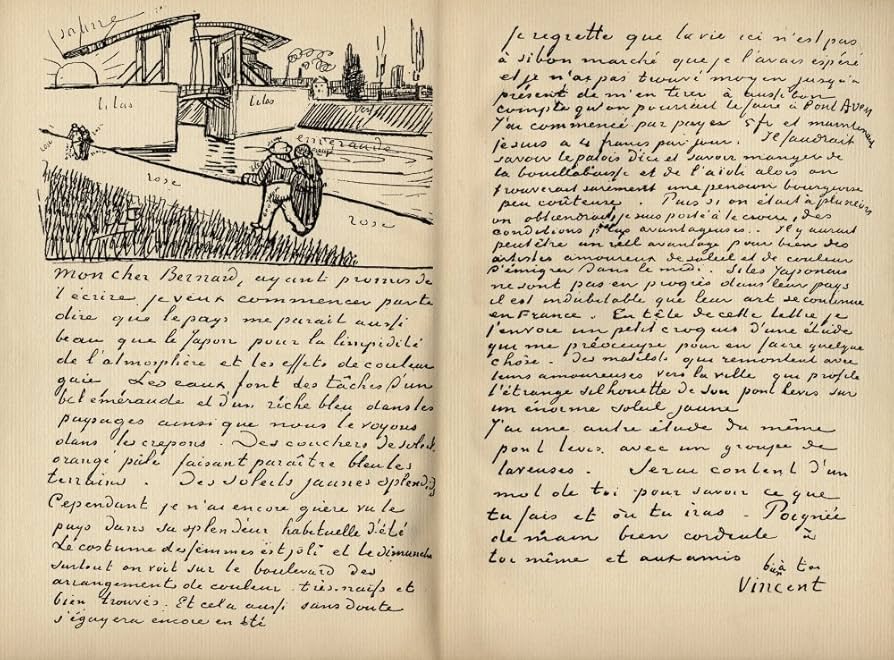 lilas
lilas
vert
émeraude
rose
rose
mon cher Bernard, ayant promis de
t'écrire je veux commencer par te
dire que le pays me parait aussi
beau que le Japon pour la limpidité
de l'atmosphère et les effets de couleur
gaie Les eaux font des tâches d'un
bel émeraude et d'un riche bleu dans les
paysages ainsi que nous le voyons
dans les crepons. Des couchers de soleil
orangé pâle faisant paraître bleu les
terrains. Des soleils jaunes splendides
Cependant je n'ai encore guère vu le
pays dans sa splendeur habituelle d'été
Le costume des femmes est joli et le dimanche
surtout on voit sur le boulevard des
arrangements de couleur très naïfs et
bien trouvés. Et cela aussi sans doute
s'égayera encore en été
je regrette que la vie ici n'est pas
à si bon marché que je l'avais espéré
et je n'ai pas trouvé moyen jusqu'à
présent de m'en tirer à aussi bon
compte qu'on pourrait le faire à Pont Aven
J'ai commencé par payer 5 fr et maintenant
je suis à 4 francs par jour. Il faudrait
savoir le patois d'ici et savoir manger de
la bouillabaisse et de l'aïoli alors on
trouverait surement une pension bourgeoise
peu coûteuse. Puis si on était à plusieurs
on obtiendrait, je suis porté à le croire, des
conditions plus avantageuses. Il y aurait
peut être un réell avantage pour bien des
artistes amoureux de soleil et de couleur
d'émigrer dans le midi. Si les Japonais
ne sont pas en progrès dans leur pays
il est indubitable que leur art se continue
en France. En tête de cette lettre je
t'envoie un petit croquis d'une étude
qui me préoccupe pour en faire quelque
chose. Des matelots qui remontent avec
leurs amoureuses vers la ville qui profile
l'étrange silhouette de son pont levis sur
un énorme soleil jaune
J'ai une autre étude du même
pont levis avec un groupe de
laveuses. Serai content d'un
mot de toi pour savoir ce que
tu fais et où tu iras. Poignée
de main bien cordiale à
toi même et aux amis
b à toi
Vincent